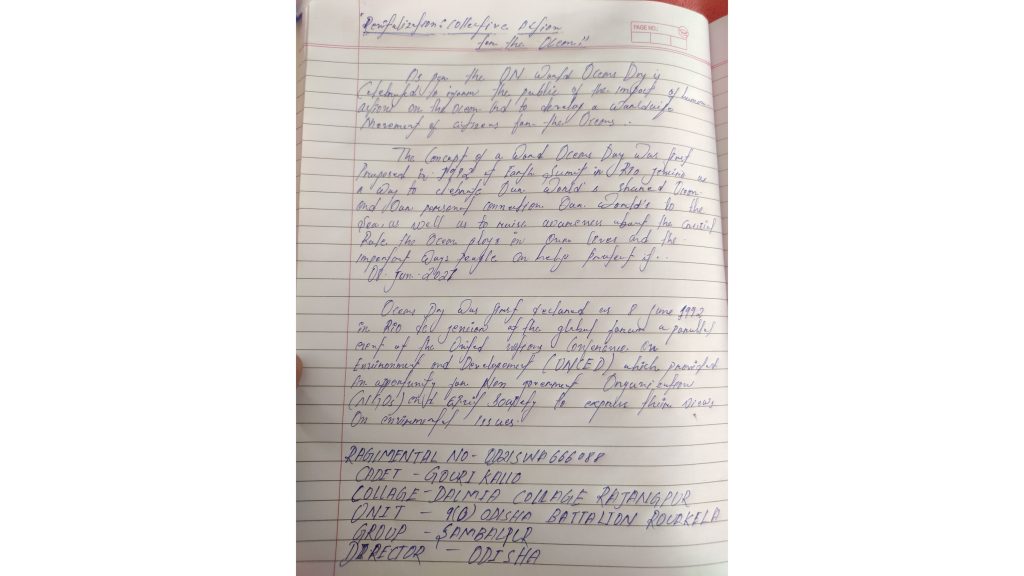 "Revitalization: Collective Action
for the Ocean"
PAGE NO.:
As per the UN World Oceans Day is
Celebrated to inform the public of the impact of human
action on the Ocean and to develop a worldwide
Movement of citizens for the Oceans.
The Concept of a World Oceans Day Was first
Proposed in 1992 at Earth Summit in Rio as
a Way to celebrate Our World's shared Ocean
and Our personal connection Our World's to the
Sea, as well as to raise awareness about the crucial
Role the Ocean plays in Our lives and the
important Ways People can help Protect it..
08. Jun. 2021
Oceans Day Was first declared as 8 June 1992
in Rio de at the global forum a parallel
event at the United Conference On
Environment and Development (UNCED) which provided
an opportunity for Non government Organization
(NGOs) and Civil Society to express their views
On environmental Issues.
RAGIMENTAL NO-
CADET - GOURI KALLO
COLLAGE - DALMIA COLLAGE RAJANGPUR
UNIT - ODISHA BATTALION ROURKELA
GROUP - SAMBALPUR
DIRECTOR - ODISHA